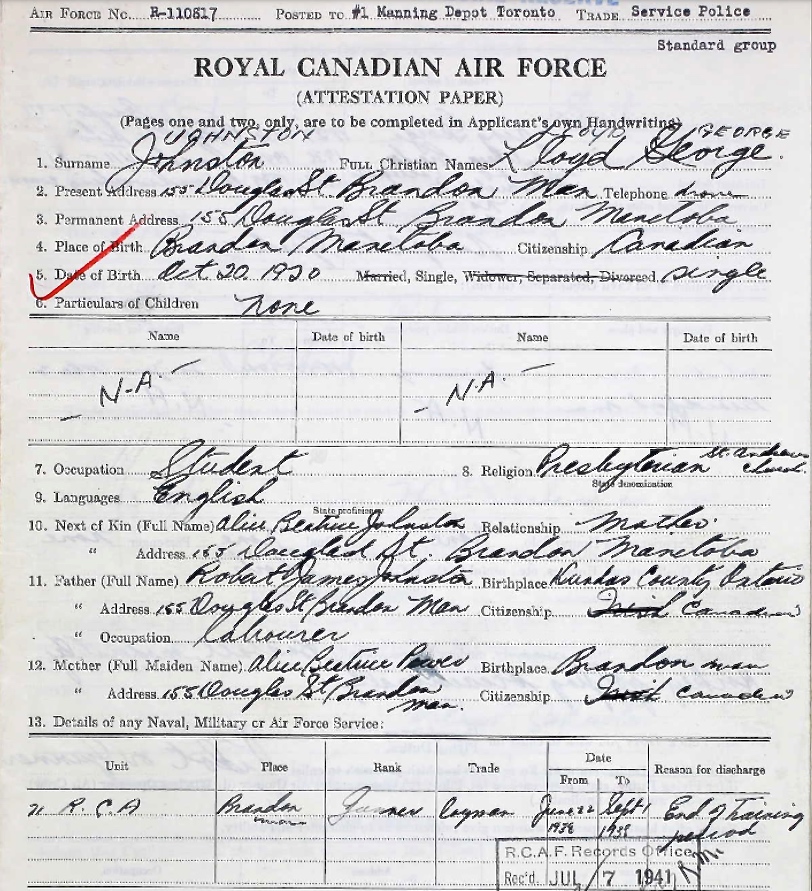 AIR FORCE NO. R-110617 POSTED TO #1 Manning Depot Toronto TRADE Service Police
Standard group
ROYAL CANADIAN AIR FORCE
(ATTESTATION PAPER)
(Pages one and two, only, are to be completed in Applicant's own Handwriting)
JOHNSTON LLOYD GEORGE
1. Surname Johnston FULL Christian Names Lloyd George.
2. Present Address 155 Douglas St. Brandon Man Telephone
3. Permanent Address 155 Douglas St Brandon Manitoba
4. Place of Birth Brandon Manitoba Citizenship Canadian
5. Date of Birth Oct 20. 1920 Married, Single, Widower, Separated, Divorced single
6. Particulars of Children none
Name Date of birth Name Date of birth
- N-A. - - N.A. -
7. Occupation Student 8. Religion Presbyterian St. Andrews Church.
State denomination
9. Languages English
State proficiency
10. Next of Kin (Full Name) Alice Beatrice Johnston Relationship Mother.
" Address 155 Douglas St. Brandon Manitoba
11. Father (Full Name) Robert James Johnston Birthplace Dundas County Ontario
" Address 155 Douglas St Brandon Man Citizenship Irish Canadian
" Occupation labourer
12. Mother (Full Maiden Name) Alice Beatrice Birthplace Brandon man
" Address 155 Douglas St Brandon man. Citizenship Irish Canadian
13. Details of any Naval, Military or Air Force Service:
Unit Place Rank Trade Date Reason for discharge
From To
R.C.A Brandon man Gunner June 22 1938 Sept 1 1938 End of Training period
R.C.A.F. Records Office
Rec'd. JUL 7 1941